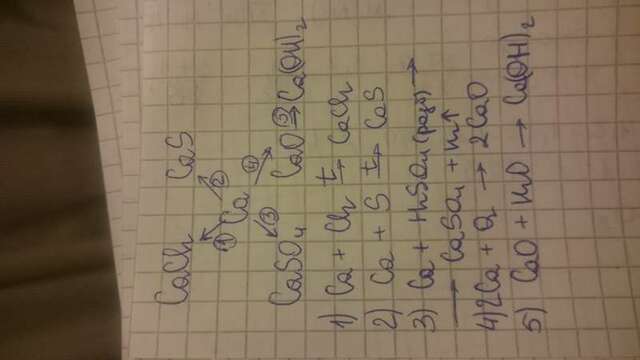 CaCl₂ CaS
① ②
Ca
③ ④
CaSO₄ CaO ⑤→ Ca(OH)₂
1) Ca + Cl₂ t→ CaCl₂
2) Ca + S t→ CaS
3) Ca + H₂SO₄ (разб) →
→ CaSO₄ + H₂↑
4) 2Ca + O₂ → 2CaO
5) CaO + H₂O → Ca(OH)₂